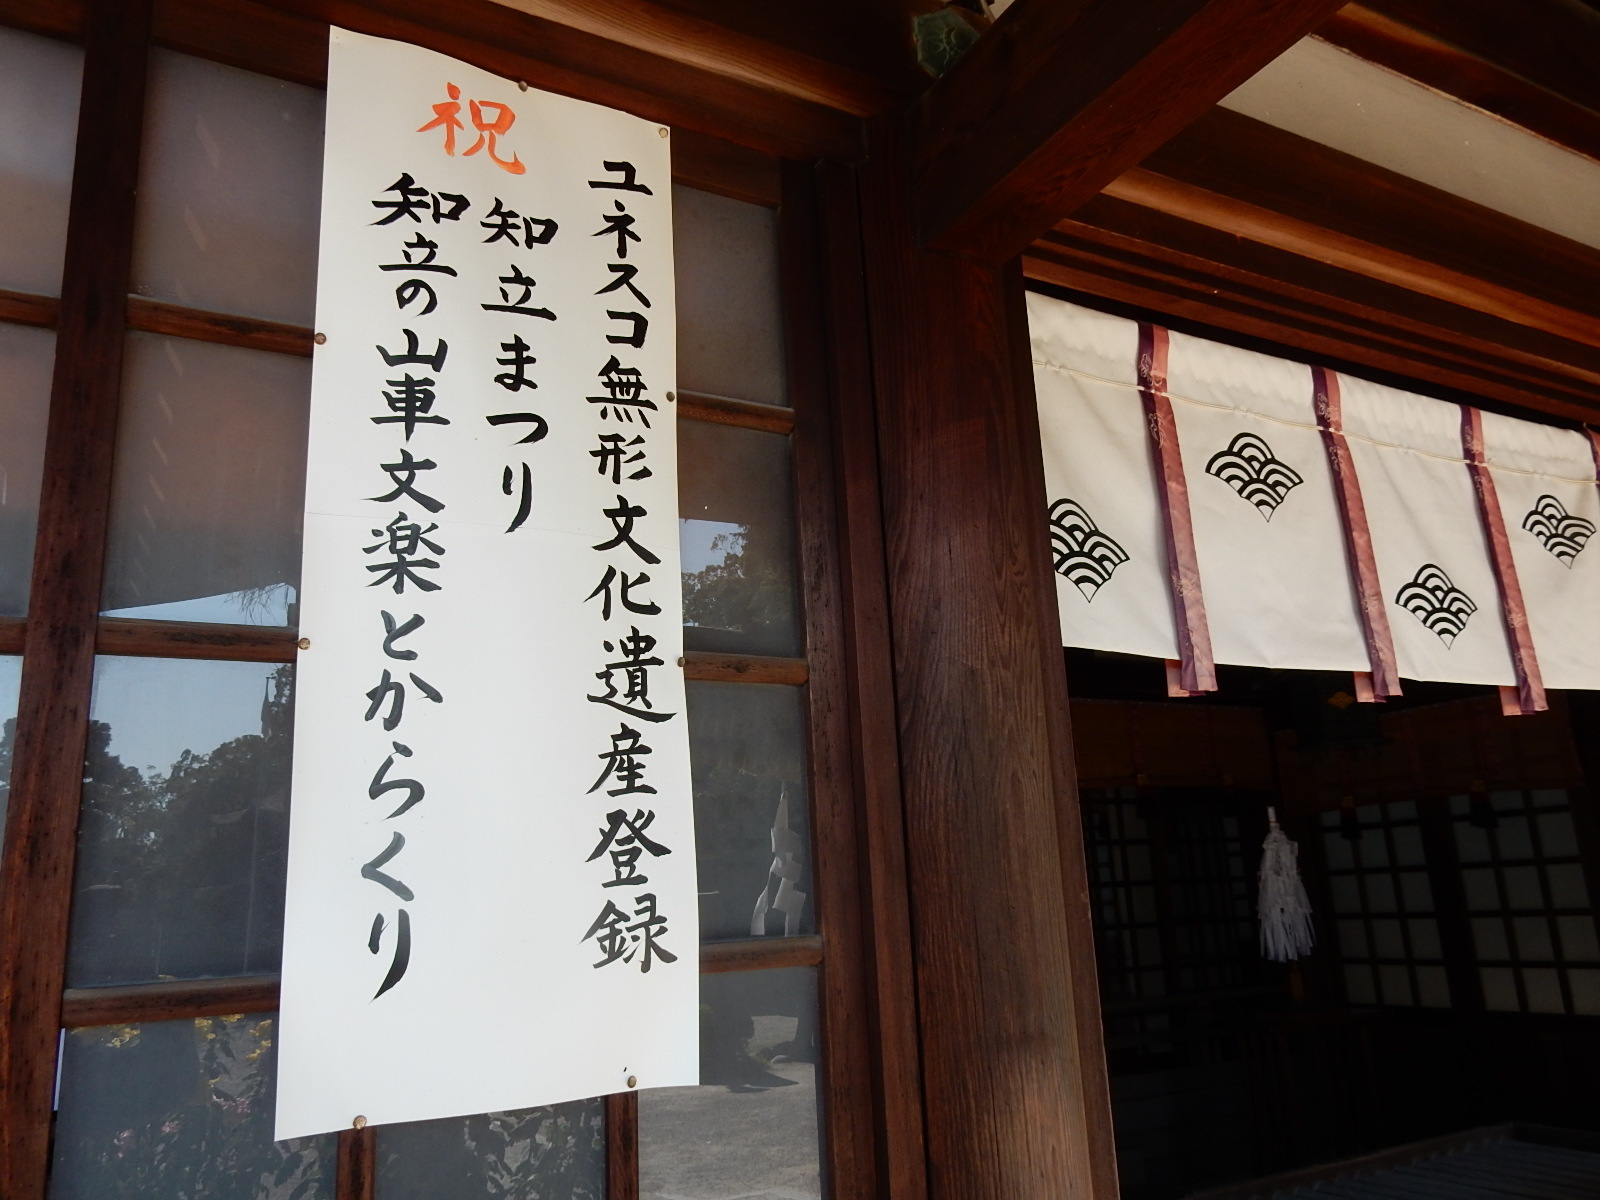 祝
ユネスコ無形文化遺産登録
知立まつり
知立の山車文楽とからくり